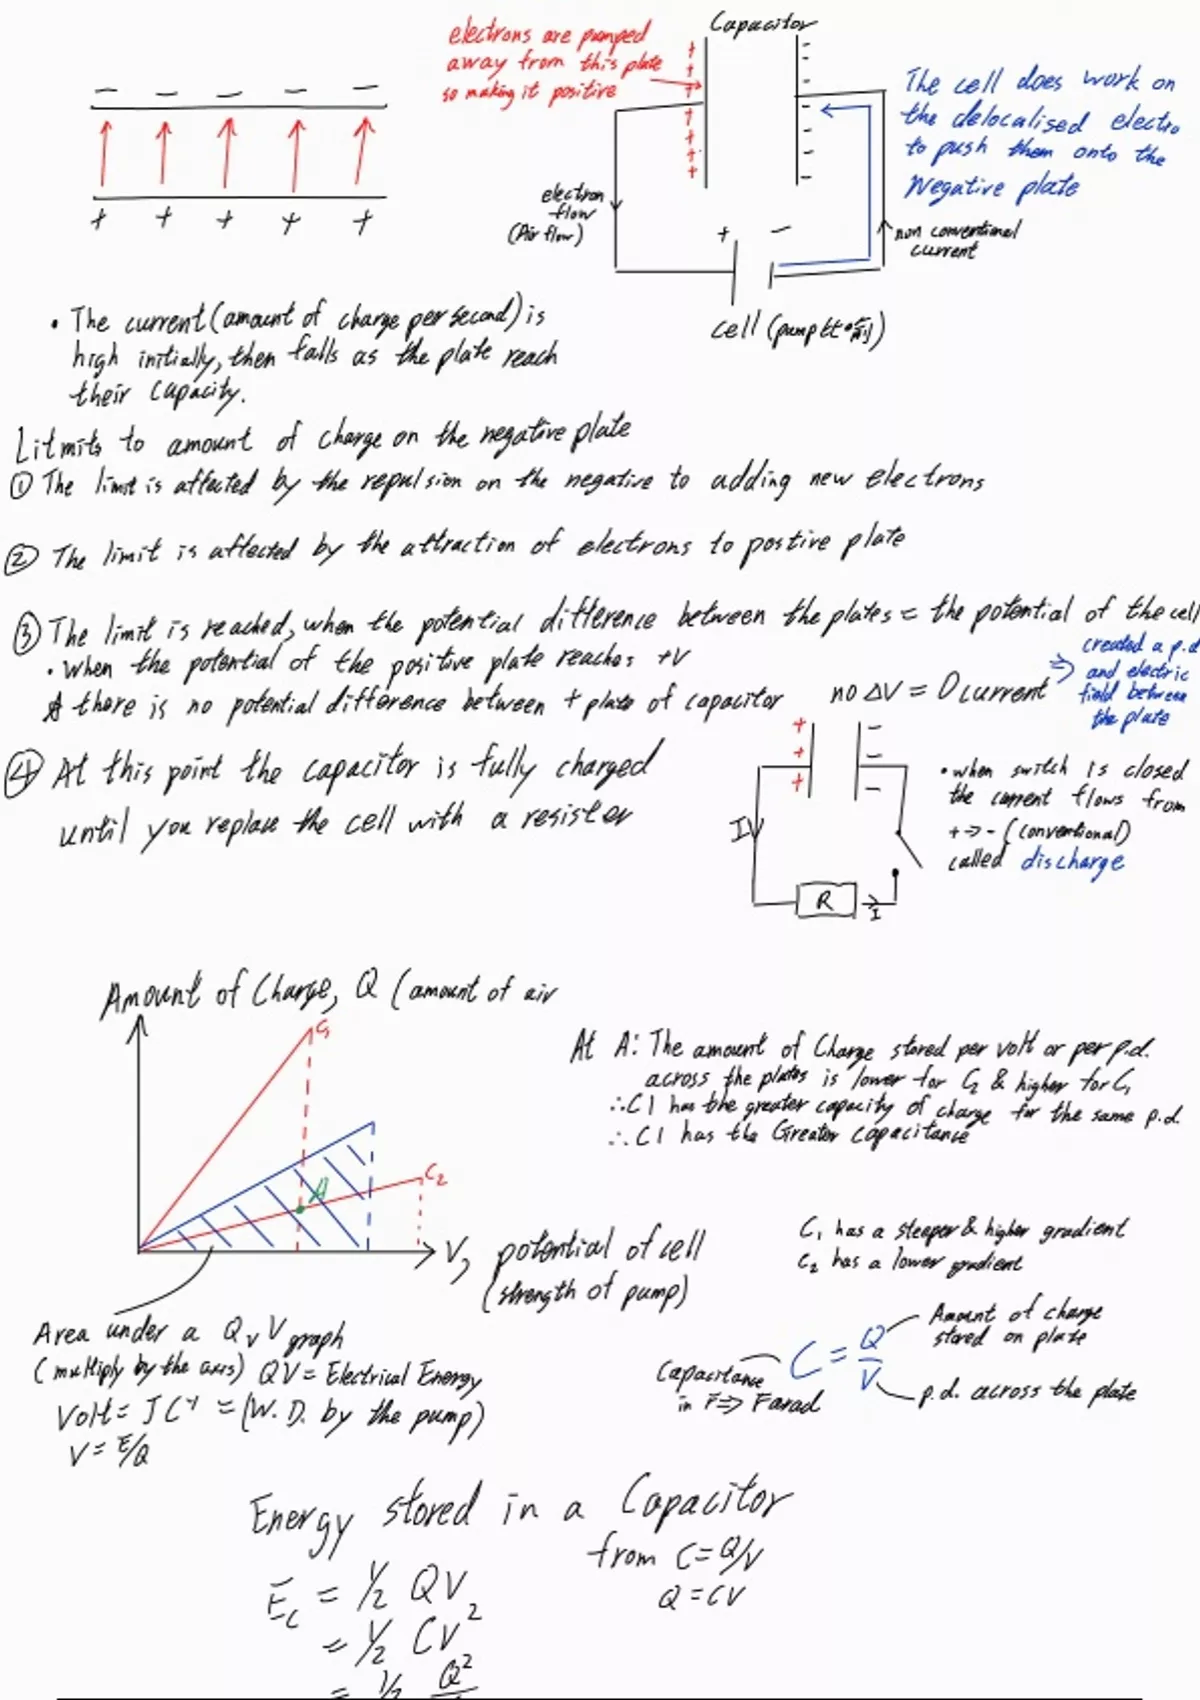 Capacitor
electrons are pumped
away from this plate
so making it positive
+ + + + + + +
- - - - - - - -
The cell does work on
the delocalised electro
to push them onto the
Negative plate
- - - - -
+ + + + +
electron
flow
(Air flow)
+ -
non conventional
current
cell (pump
• The current (amount of charge per second) is
high initially, then falls as the plate reach
their capacity.
Litmits to amount of charge on the negative plate
① The limit is affected by the repulsion on the negative to adding new electrons
② The limit is affected by the attraction of electrons to postive plate
③ The limit is reached, when the potential difference between the plates = the potential of the cell
• when the potential of the positive plate reaches +V
there is no potential difference between + plate of capacitor
no ΔV = 0 current
⇒ created a p.d
and electric
field between
the plate
④ At this point the capacitor is fully charged
until you replace the cell with a resister
+ + +
- - -
I
R
I
• when switch is closed
the current flows from
+ → - (conventional)
called discharge
Amount of Charge, Q (amount of air
C1
C2
A
V, potential of cell
(strength of pump)
At A: The amount of Charge stored per volt or per p.d.
across the plates is lower for C2 & higher for C1
∴ C1 has the greater capacity of charge for the same p.d.
∴ C1 has the Greater Capacitance
C1 has a steeper & higher gradient
C2 has a lower gradient
Area under a Q v V graph
(multiply by the axis) QV = Electrical Energy
Volt = J C⁻¹ = (W.D. by the pump)
V = E/Q
Capacitance
in F ⇒ Farad
C = Q/V
Amount of charge
stored on plate
p.d. across the plate
Energy stored in a Capacitor
from C = Q/V
Q = CV
Ec = ½ QV
= ½ CV²
= ½ Q²